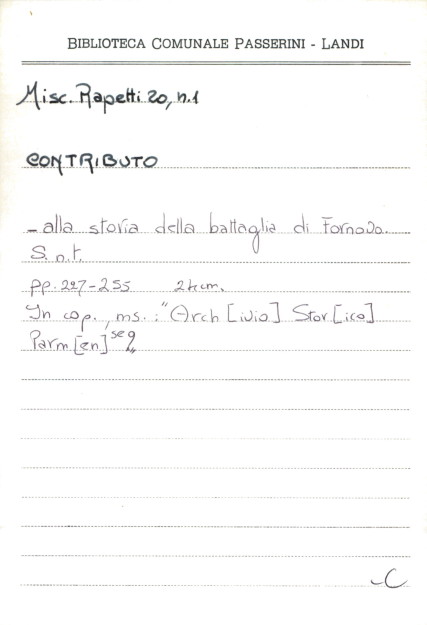 BIBLIOTECA COMUNALE PASSERINI - LANDI
Misc. Rapetti 20, n.1
CONTRIBUTO
- alla storia della battaglia di Fornovo.
S. n. t.
pp. 227-255 24 cm.
In cop., ms.: "Arch [ivio] Stor [ico]
Parm [en] seg„
-C